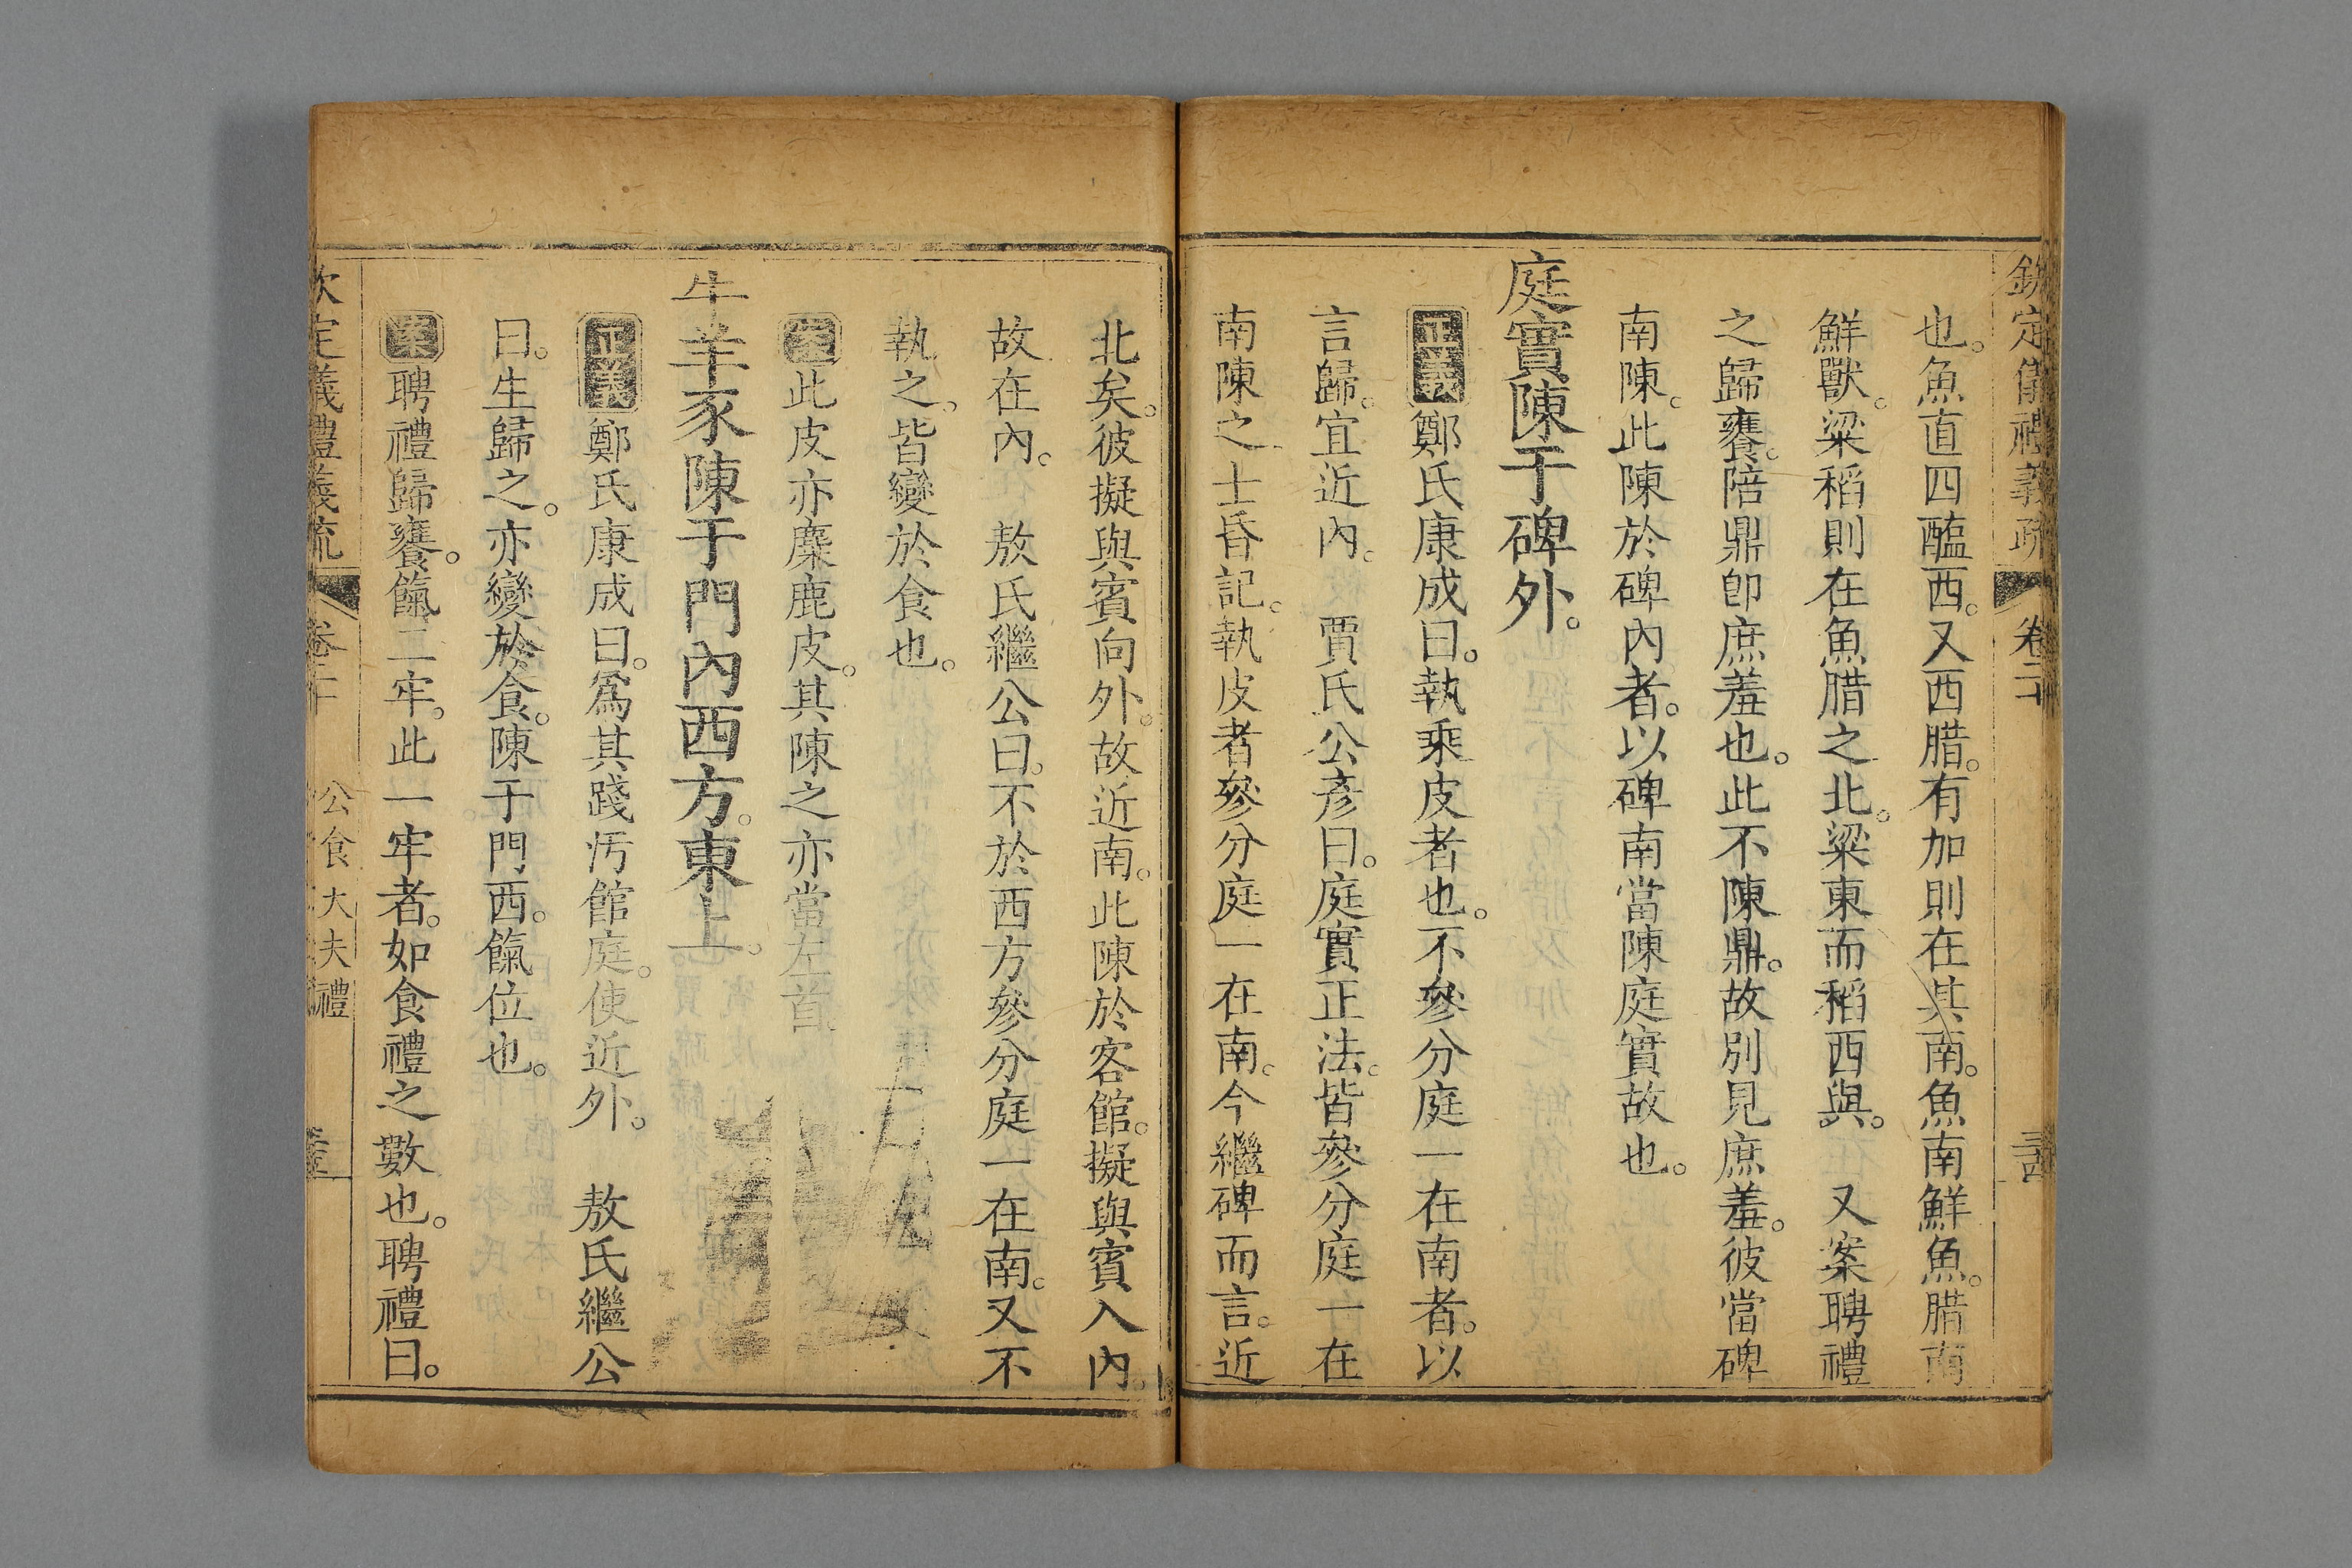 欽定儀禮義疏 卷二十 三
也。魚直四醢西。又西腊。有加則在其南。魚南鮮魚。腊南
鮮獸。粱稻則在魚腊之北。粱東而稻西與。 又案聘禮
之歸饔。陪鼎卽庶羞也。此不陳鼎。故別見庶羞。彼當碑
南陳。此陳於碑內者。以碑南當陳庭實故也。
庭實陳于碑外。
正義鄭氏康成曰。執乘皮者也。不參分庭一在南者。以
言歸。宜近內。 賈氏公彥曰。庭實正法。皆參分庭一在
南陳之士昏記。執皮者參分庭一在南。今繼碑而言。近
北矣。彼擬與賓向外。故近南。此陳於客館。擬與賓入內。
故在內。 敖氏繼公曰。不於西方參分庭一在南。又不
執之。皆變於食也。
案此皮亦麋鹿皮。其陳之亦當左首
牛羊豕陳于門內西方。東上。
正義鄭氏康成曰。爲其踐污館庭。使近外。 敖氏繼公
曰。生歸之。亦變於食。陳于門西。餼位也。
案聘禮歸饔。餼二牢。此一牢者。如食禮之數也。聘禮曰。
欽定儀禮義疏 卷二十 公食大夫禮